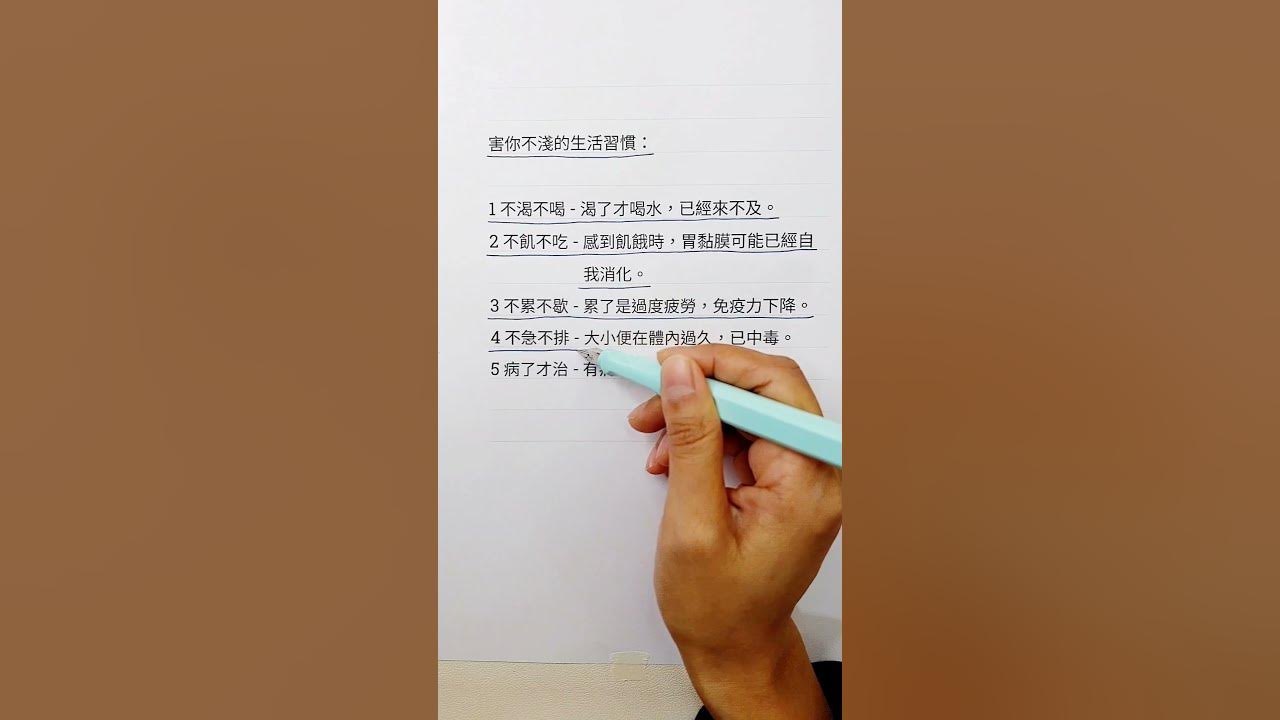 害你不淺的生活習慣：
1 不渴不喝 - 渴了才喝水，已經來不及。
2 不飢不吃 - 感到飢餓時，胃黏膜可能已經自
我消化。
3 不累不歇 - 累了是過度疲勞，免疫力下降。
4 不急不排 - 大小便在體內過久，已中毒。
5 病了才治 - 有